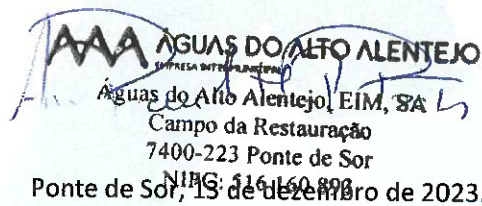 ÁGUAS DO ALTO ALENTEJO
EMPRESA INTERMUNICIPAL
Águas do Alto Alentejo, EIM, SA
Campo da Restauração
7400-223 Ponte de Sor
NIPC: 516 160 893
Ponte de Sor, 13 de dezembro de 2023.